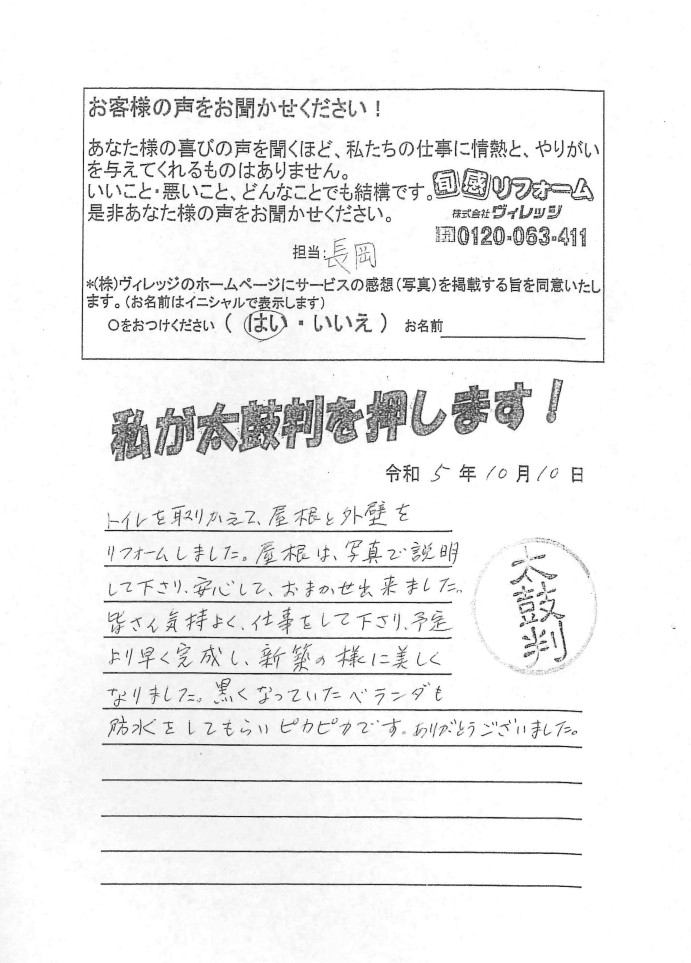 お客様の声をお聞かせください！
あなた様の喜びの声を聞くほど、私たちの仕事に情熱と、やりがい
を与えてくれるものはありません。
いいこと・悪いこと、どんなことでも結構です。
是非あなた様の声をお聞かせください。
旬感リフォーム
株式会社ヴィレッジ
0120-063-411
担当：長岡
*(株)ヴィレッジのホームページにサービスの感想（写真）を掲載する旨を同意いたし
ます。（お名前はイニシャルで表示します）
○をおつけください （ はい ・ いいえ ） お名前
私が太鼓判を押します！
令和 5 年 10 月 10 日
トイレを取りかえて、屋根と外壁を
リフォームしました。屋根は、写真で説明
して下さり、安心して、おまかせ出来ました。
皆さん気持よく、仕事をして下さり、予定
より早く完成し、新築の様に美しく
なりました。黒くなっていたベランダも
防水をしてもらいピカピカです。ありがとうございました。
太鼓判